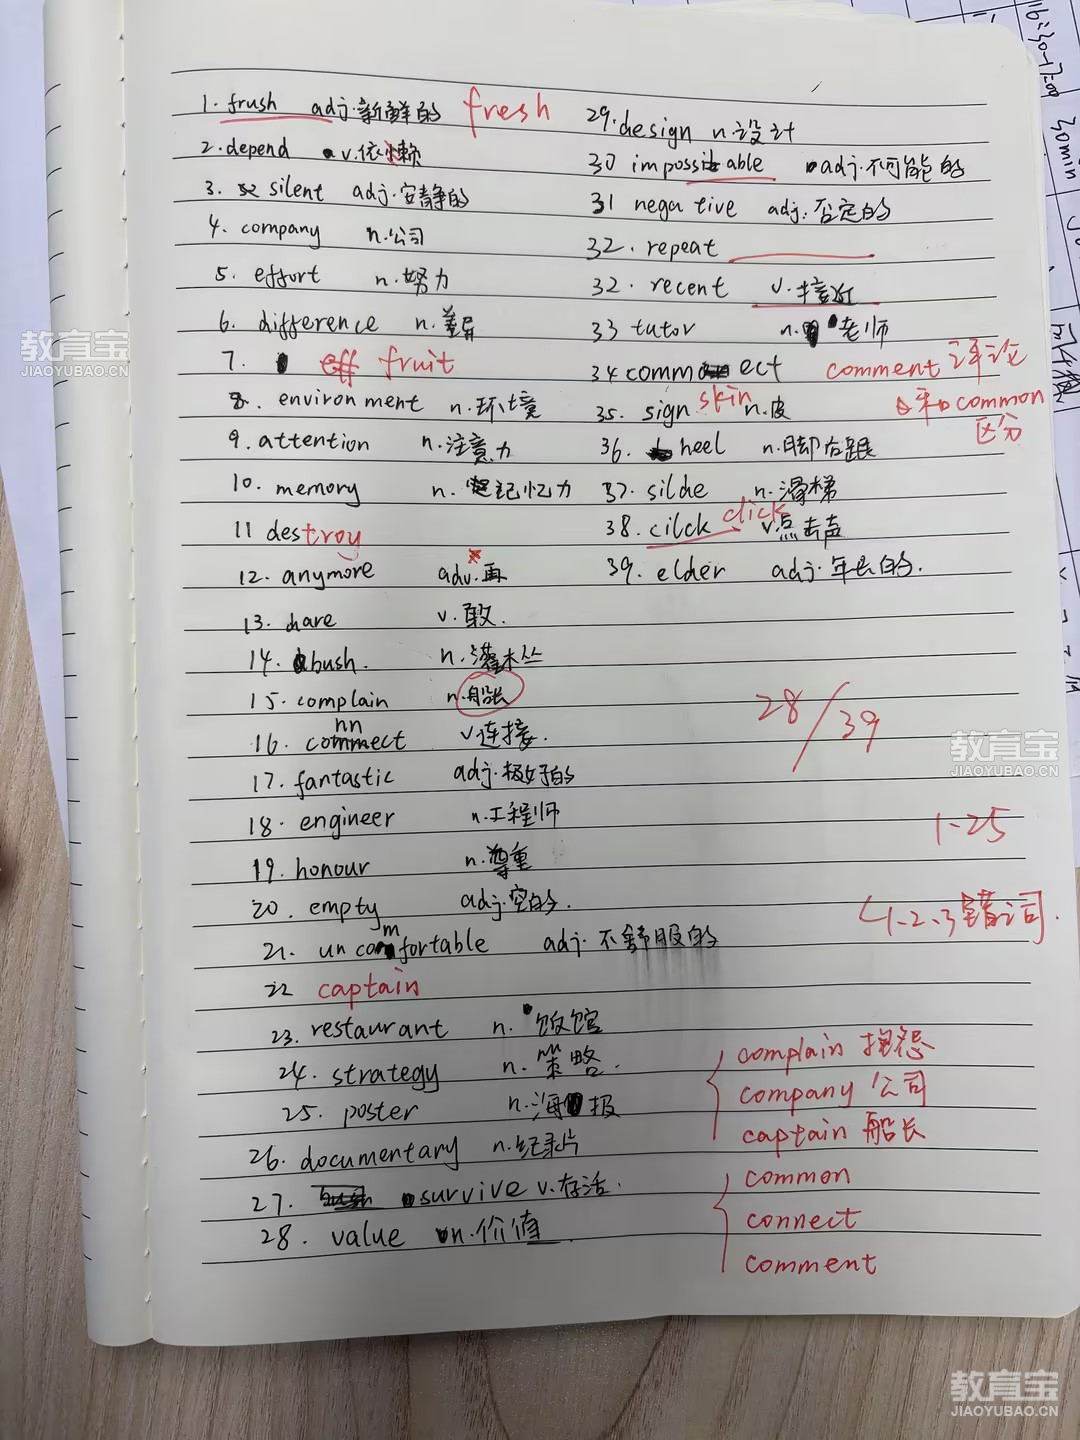 1. frush adj.新鲜的 fresh
2.depend v.依懒
3. silent adj.安静的
4. company n.公司
5. effort n.努力
6. difference n.差异
7. eff fruit
8. environment n.环境
9. attention n.注意力
10. memory n.记忆力
11 destroy
12. anymore adv.再
13. dare v.敢.
14. bush. n.灌木丛
15. complain n.船长
16. connect v连接.
17. fantastic adj.极好的
18. engineer n.工程师
19. honour n.尊重
20. empty adj.空的.
21. uncomfortable adj.不舒服的
22 captain
23. restaurant n.饭馆
24. strategy n.策略.
25. poster n.海报
26. documentary n.纪录片
27. survive v.存活.
28. value n.价值.
29.design n设计
30 impossitable adj.不可能的
31 negative adj.否定的
32. repeat
32. recent v.接近
33 tutor n.老师
34 commect comment 评论
和common
区分
35. sign skin n.皮
36. heel n.脚后跟
37. silde n.滑梯
38. cilck click v点击声
39. elder adj.年长的.
28/39
1-25
1.2.3错词.
complain 抱怨
company 公司
captain 船长
common
connect
comment
16:30-17:00
30min
教育宝
JIAOYUBAO.CN
教育宝
JIAOYUBAO.CN
教育宝
JIAOYUBAO.CN